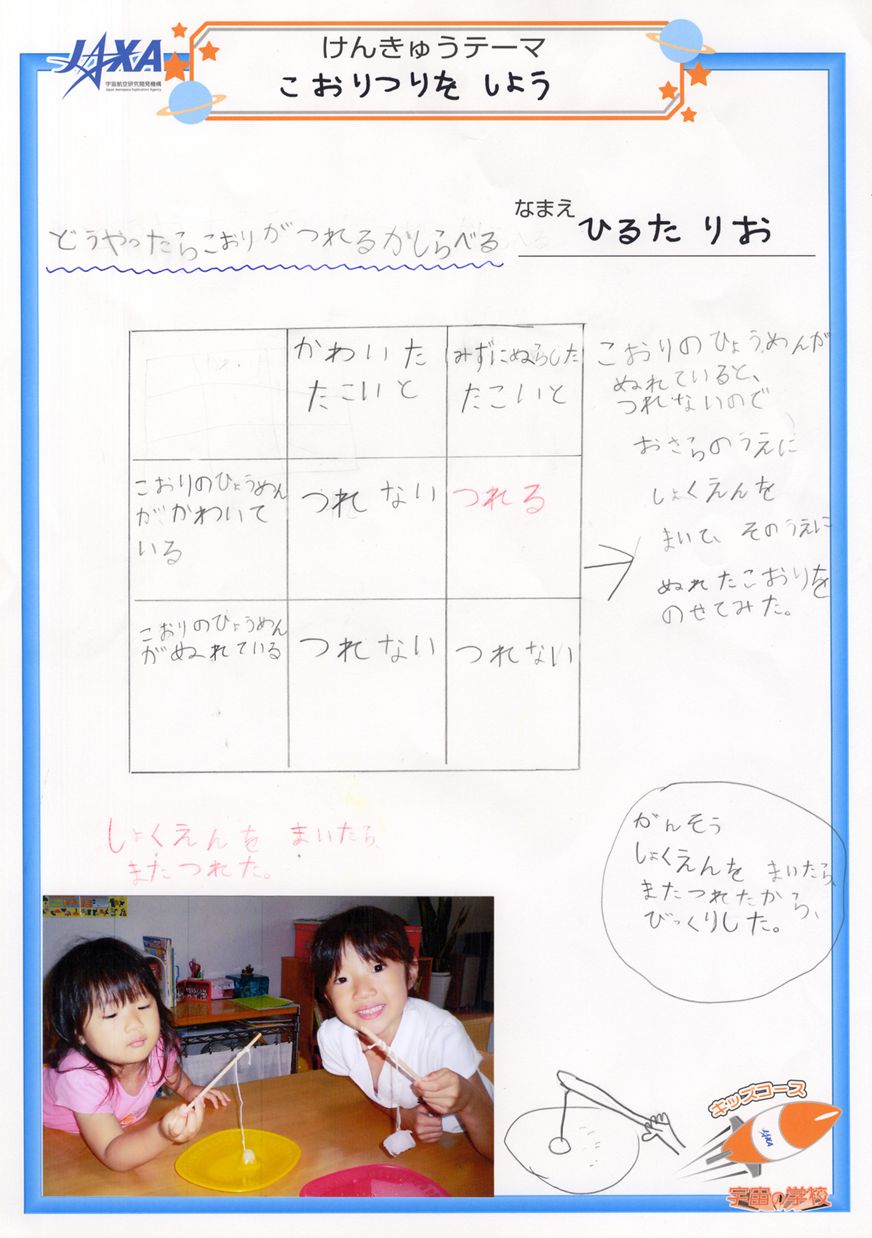 JAXA
宇宙航空研究開発機構
Japan Aerospace Exploration Agency
けんきゅうテーマ
こおりつりを しよう
なまえ
ひるた りお
どうやったらこおりがつれるかしらべる
かわいた
たこいと
みずにぬらした
たこいと
こおりのひょうめん
がかわいて
いる
つれない
つれる
こおりのひょうめん
がぬれている
つれない
つれない
こおりのひょうめんが
ぬれていると、
つれないので
おさらのうえに
しょくえんを
まいて、そのうえに
ぬれたこおりを
のせてみた。
しょくえんを まいたら
またつれた。
がんそう
しょくえんを まいたら、
またつれたから、
びっくりした。
キッズコース
JAXA
宇宙の学校